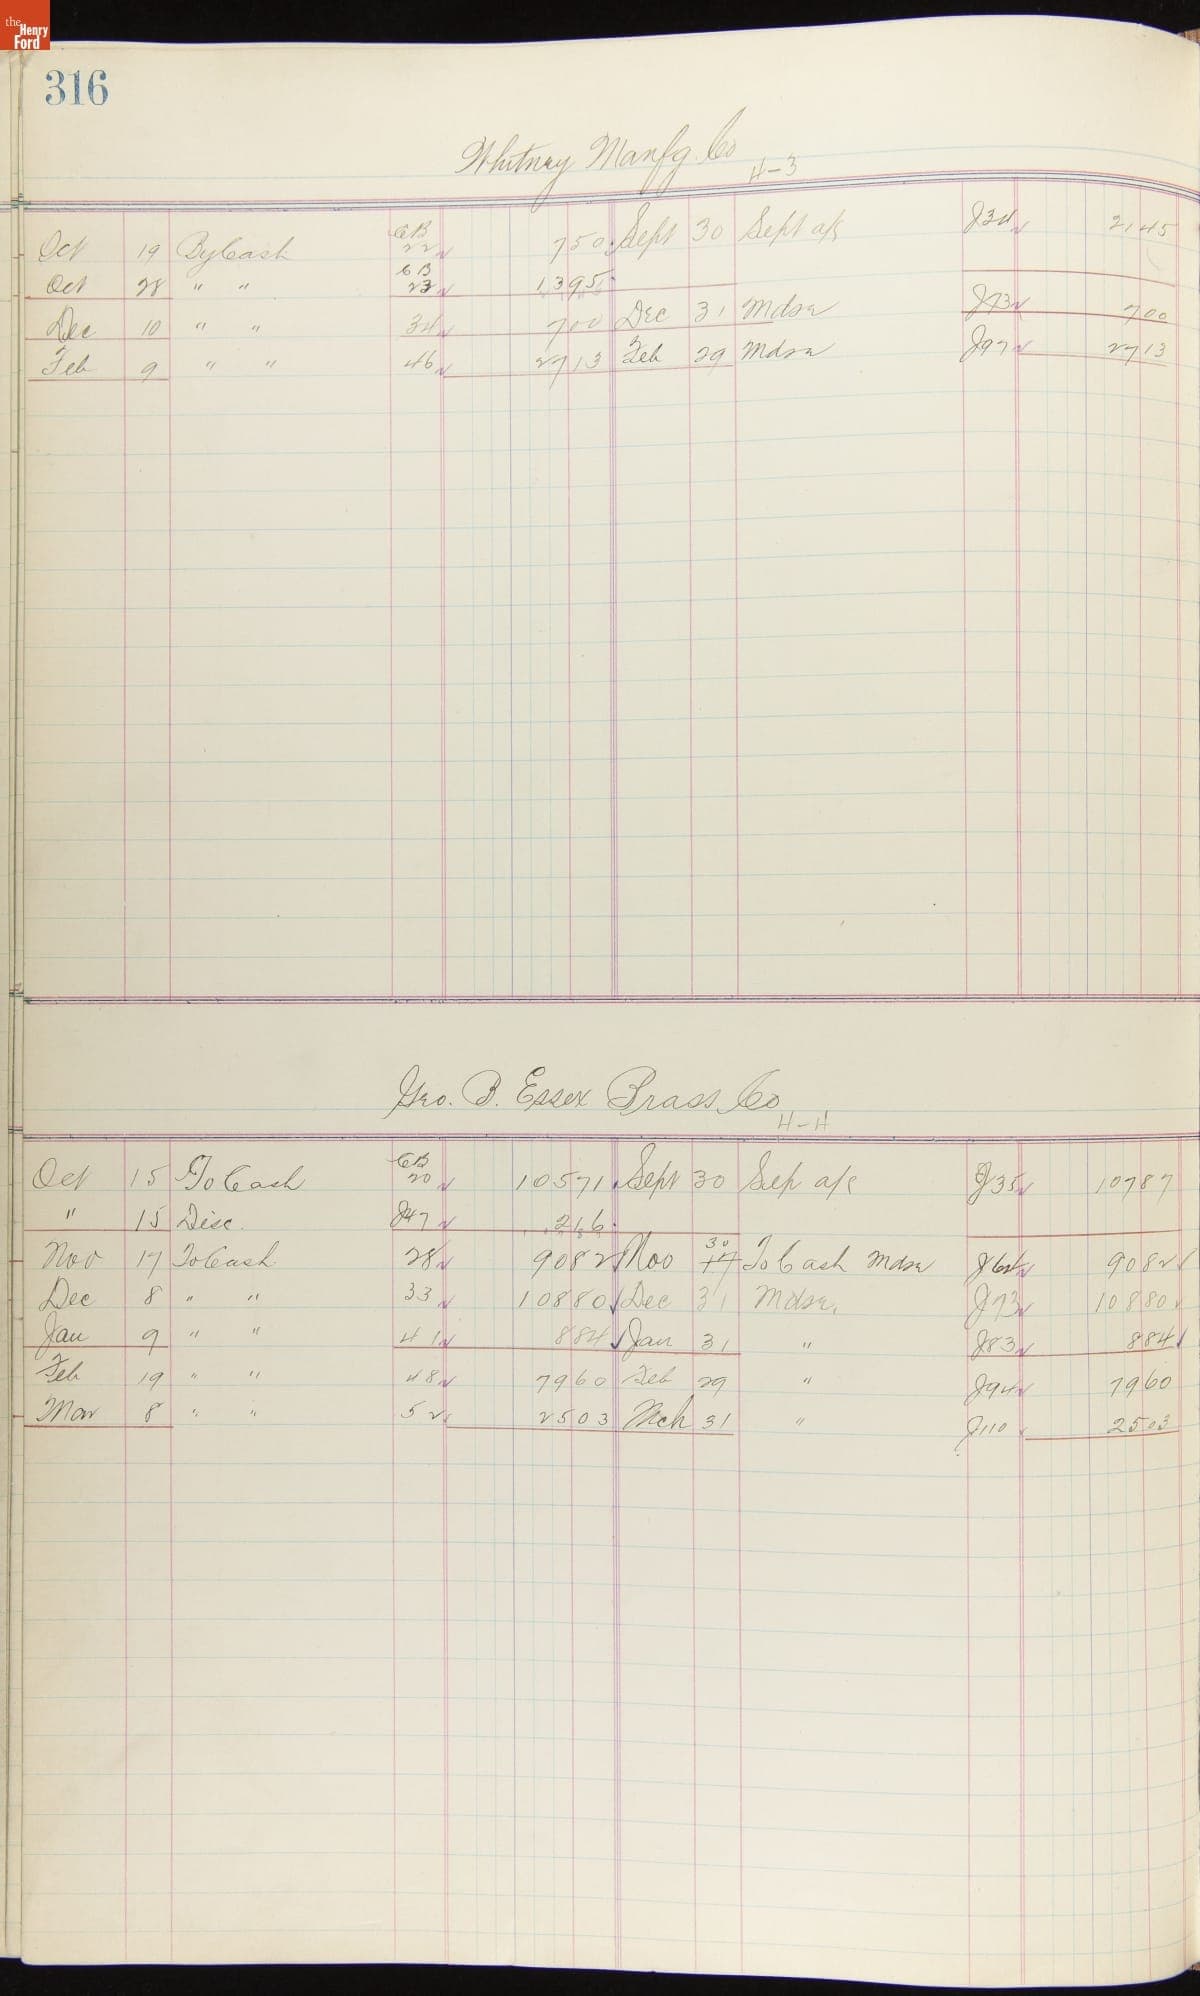 the Henry Ford
316
Whitney Manfg. Co
H-3
Oct 19 By Cash CB 22 750 Sept 30 Sept a/c J34 2145
Oct 28 " " CB 23 1395
Dec 10 " " 34 700 Dec 31 Mdse J73 700
Feb 9 " " 46 2713 Feb 29 Mdse J97 2713
Geo. B. Essex Brass Co
H-H
Oct 15 To Cash CB 20 10571 Sept 30 Sep a/c J35 10787
" 15 Disc. J47 216
Nov 17 To Cash 28 9082 Nov 30 17 To Cash Mdse 9082
Dec 8 " " 33 10880 Dec 31 Mdse. J73 10880
Jan 9 " " 41 884 Jan 31 " J83 884
Feb 19 " " 48 7960 Feb 29 " J94 7960
Mar 8 " " 52 2503 Mch 31 " J110 2503